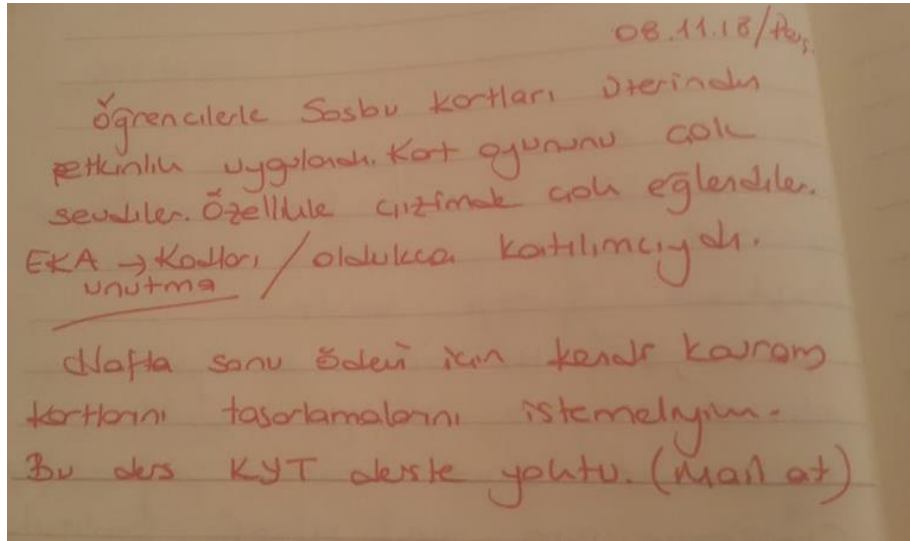 08.11.18/Perş.
Öğrencilerle Sosbu kartları üzerinden
etkinlik uygulandı. Kart oyununu çok
sevdiler. Özellikle çizimde çok eğlendiler.
EKA → Kodları / oldukca katılımcıydı.
unutma
Hafta sonu ödevi için kendi kavram
kartlarını tasarlamalarını istemeliyim.
Bu ders KYT derste yoktu. (Mail at)